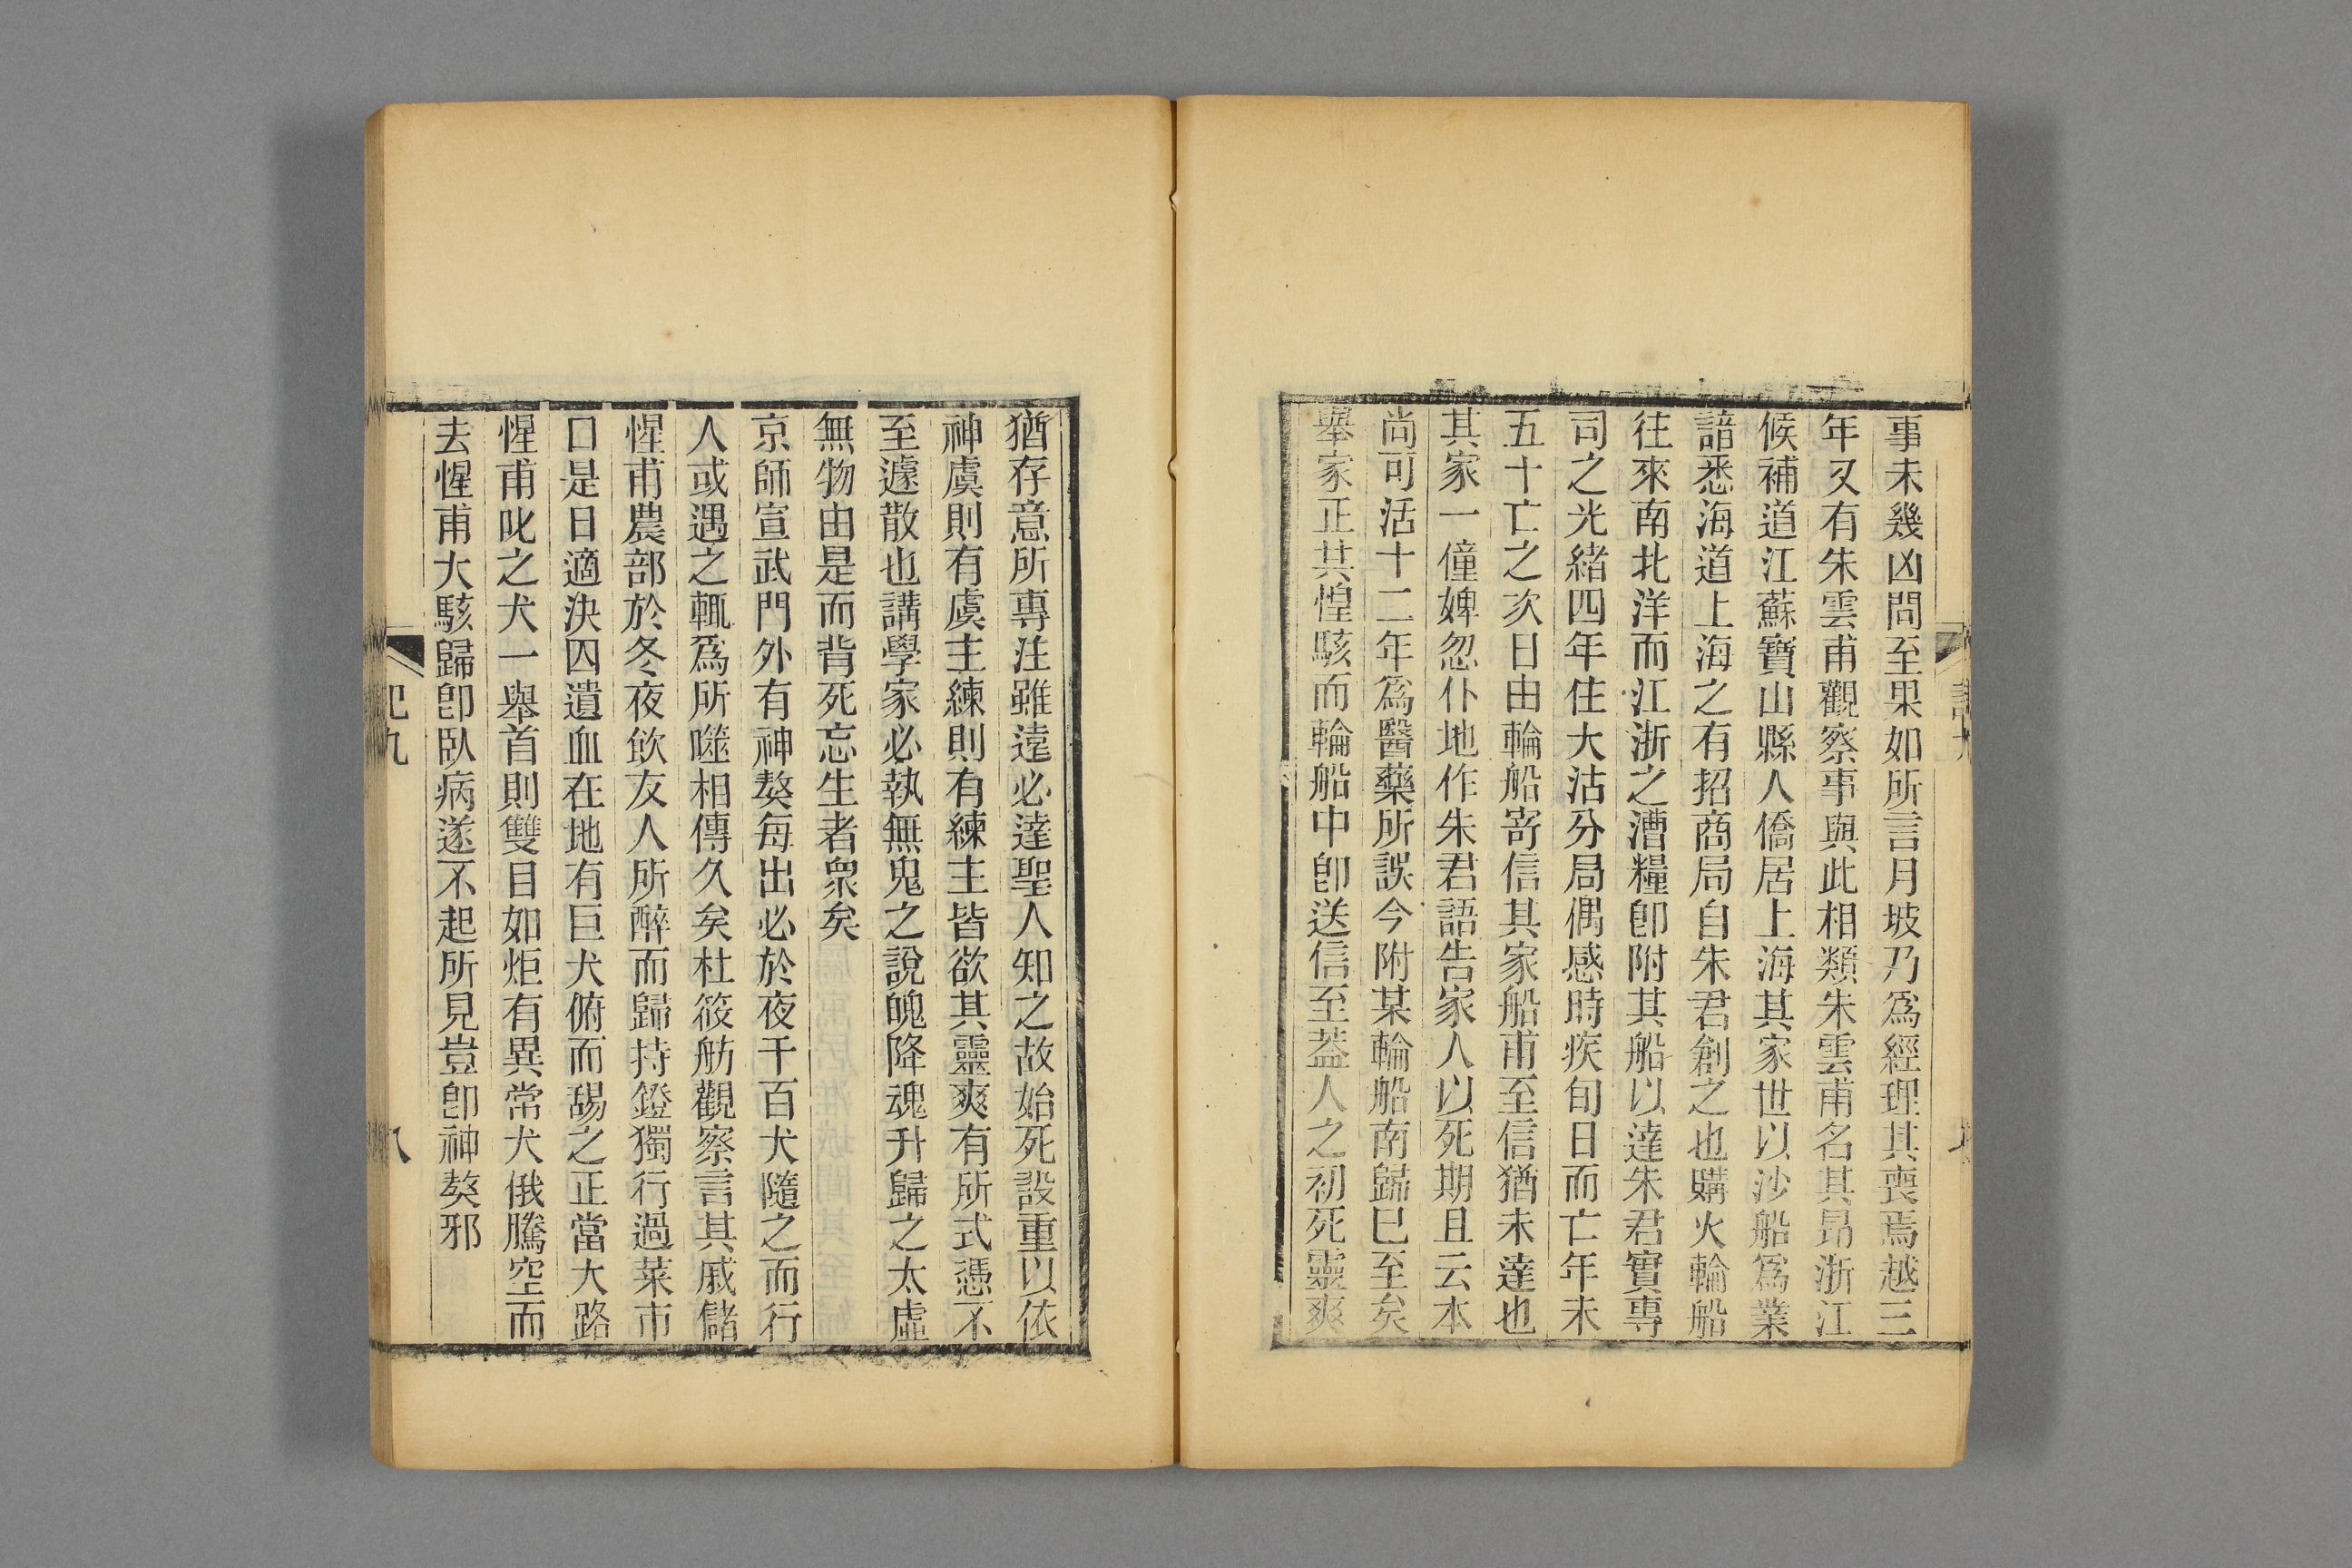 事未幾凶問至果如所言月坡乃爲經理其喪焉越三
年又有朱雲甫觀察事與此相類朱雲甫名其昂浙江
候補道江蘇寶山縣人僑居上海其家世以沙船爲業
諳悉海道上海之有招商局自朱君創之也購火輪船
往來南北洋而江浙之漕糧卽附其船以達朱君實專
司之光緒四年住大沽分局偶感時疾旬日而亡年未
五十亡之次日由輪船寄信其家船甫至信猶未達也
其家一僮婢忽仆地作朱君語告家人以死期且云本
尚可活十二年爲醫藥所誤今附某輪船南歸已至矣
舉家正共惶駭而輪船中卽送信至蓋人之初死靈爽
猶存意所專注雖遠必達聖人知之故始死設重以依
神虞則有虞主練則有練主皆欲其靈爽有所式憑不
至遽散也講學家必執無鬼之說魄降魂升歸之太虛
無物由是而背死忘生者衆矣
京師宣武門外有神獒每出必於夜千百犬隨之而行
人或遇之輒爲所噬相傳久矣杜筱舫觀察言其戚儲
惺甫農部於冬夜飲友人所醉而歸持鐙獨行過菜市
口是日適決囚遺血在地有巨犬俯而䑛之正當大路
惺甫叱之犬一舉首則雙目如炬有異常犬俄騰空而
去惺甫大駭歸卽臥病遂不起所見豈卽神獒邪
記九
八